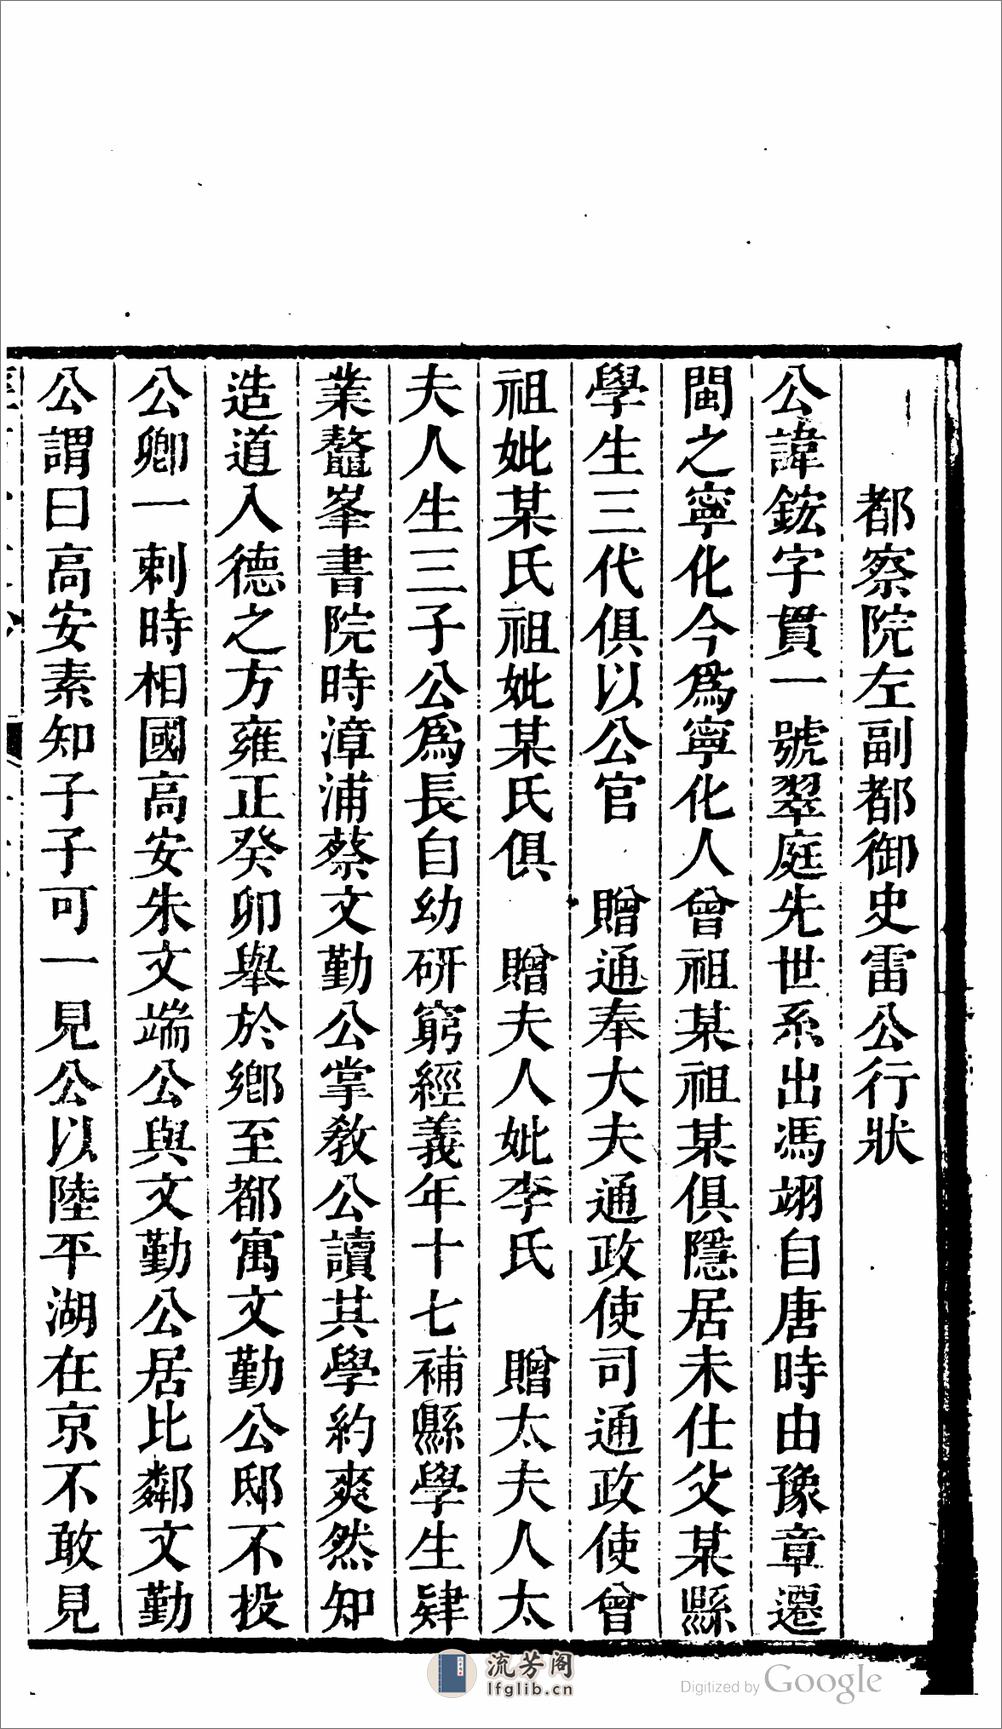 都察院左副都御史雷公行狀
公諱鋐字貫一號翠庭先世系出馮翊自唐時由豫章遷
閩之寧化今爲寧化人曾祖某祖某俱隱居未仕父某縣
學生三代俱以公官　贈通奉大夫通政使司通政使曾
祖妣某氏祖妣某氏俱　贈夫人妣李氏　贈太夫人太
夫人生三子公爲長自幼硏窮經義年十七補縣學生肄
業鼇峯書院時漳浦蔡文勤公掌教公讀其學約爽然知
造道入德之方雍正癸卯舉於鄉至都寓文勤公邸不投
公卿一刺時相國高安朱文端公與文勤公居比鄰文勤
公謂曰高安素知子子可一見公以陸平湖在京不敢見
流芳阁
lfglib.cn
Digitized by Google